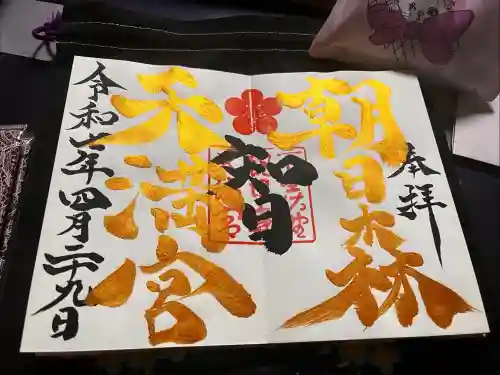 奉拝
朝日森
智
天満宮
令和七年四月二十九日